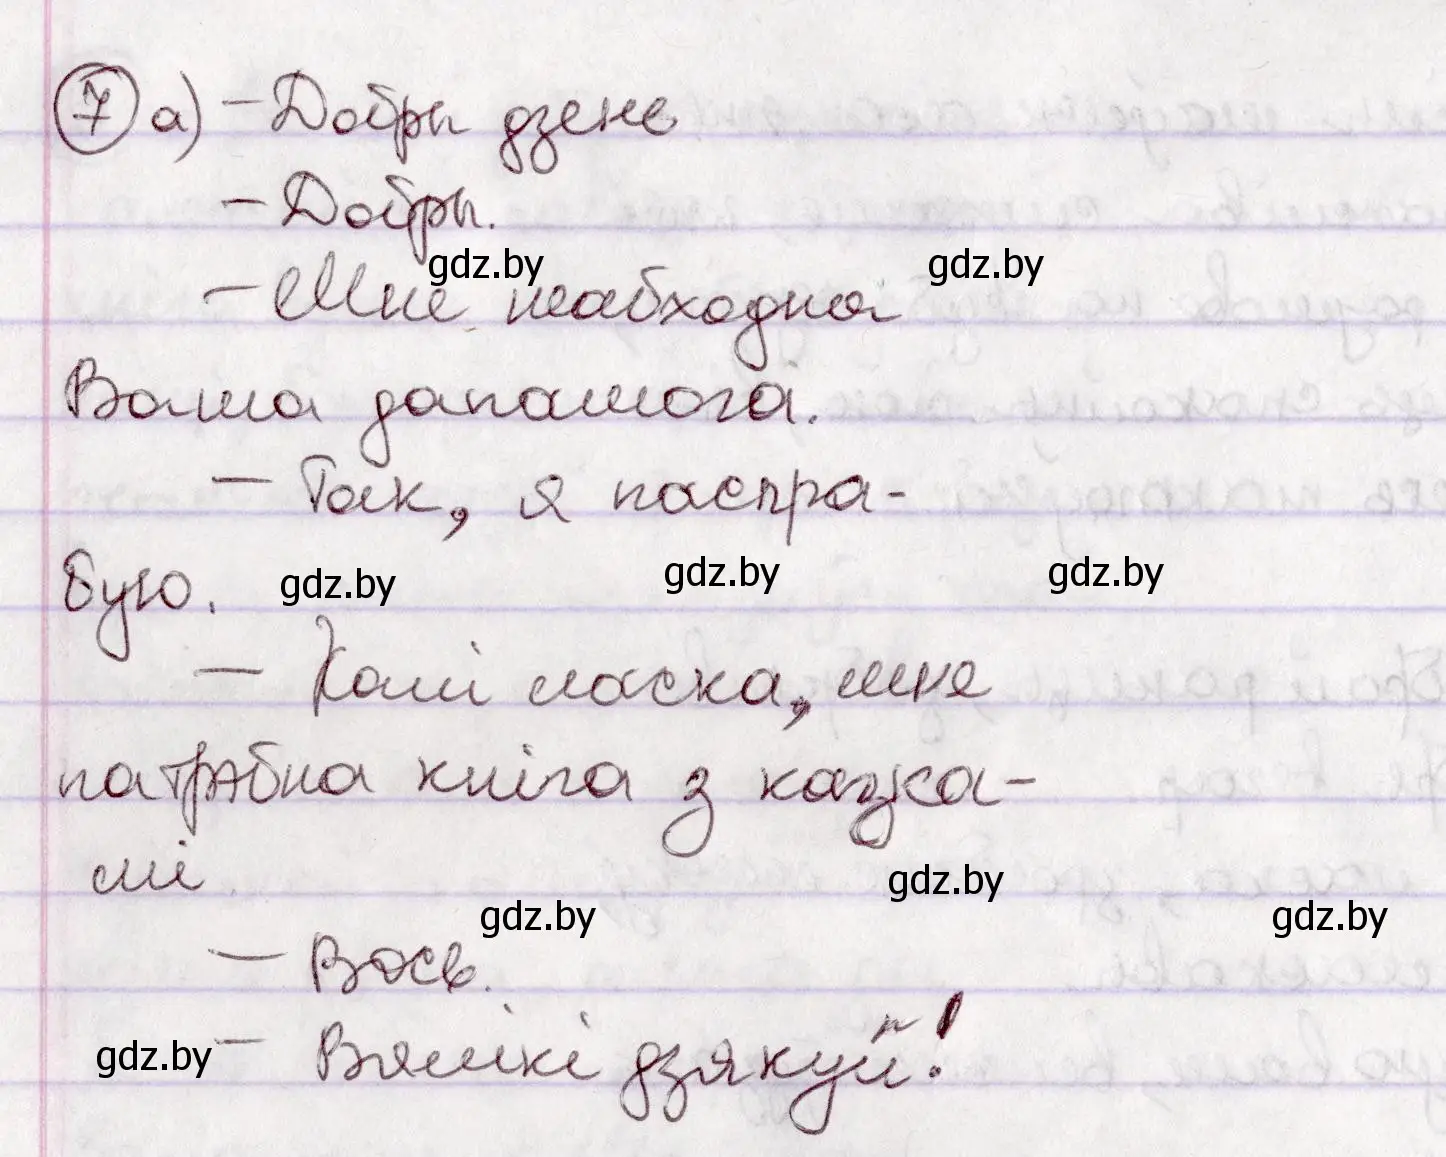 7 а) - Добры дзень
- Добры.
gdz.by gdz.by
- Мне неабходна
Ваша дапамога.
- Так, я паспра-
бую. gdz.by gdz.by gdz.by
- Калі ласка, мне
патрэбна кніга з казка-
мі.
gdz.by
gdz.by gdz.by
- Вось.
gdz.by - Вялікі дзякуй!